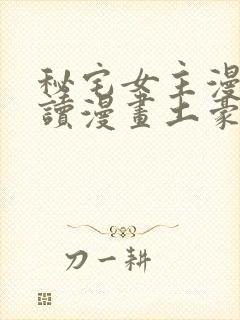 秘宅女主漫
讀漫畫土豪
刀一耕